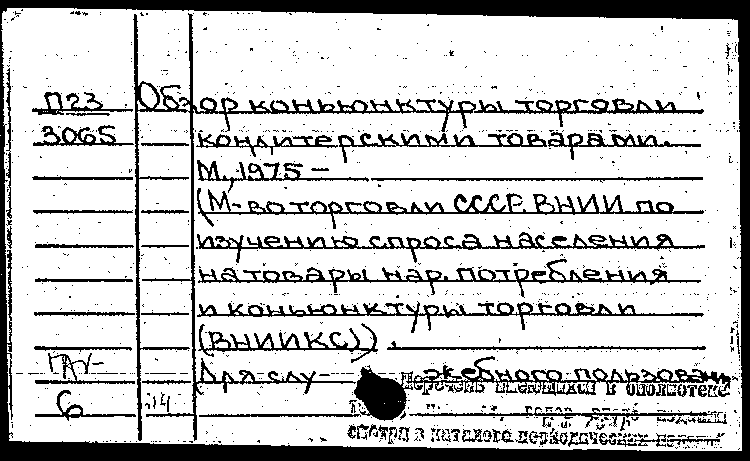 П23 Обзор коньюнктуры торговли
3065 кондитерскими товарами.
М., 1975 –
(М-во торговли СССР. ВНИИ по
изучению спроса населения
на товары нар. потребления
и коньюнктуры торговли
(ВНИИКС)).
Для слу- жебного пользован
6
Перечень имеющихся в библиотеке
издания
смотри в каталоге периодических изданий